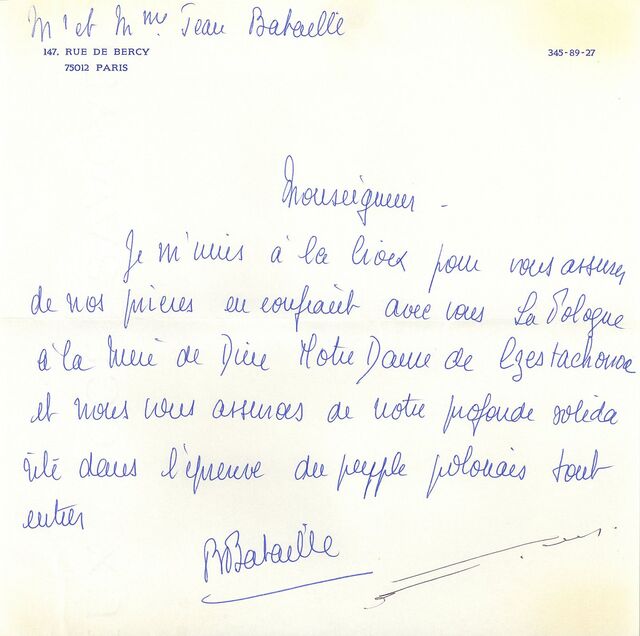 Mr et Mme. Jean Bataille
147. RUE DE BERCY 345-89-27
75012 PARIS
Monseigneur -
Je m'unis à la Croix pour vous assurer
de nos prières en confiant avec vous La Pologne
à la Mère de Dieu Notre Dame de Czestachowa
et nous vous assurons de notre profonde solida
rité dans l'épreuve du peuple polonais tout
entier
Bataille